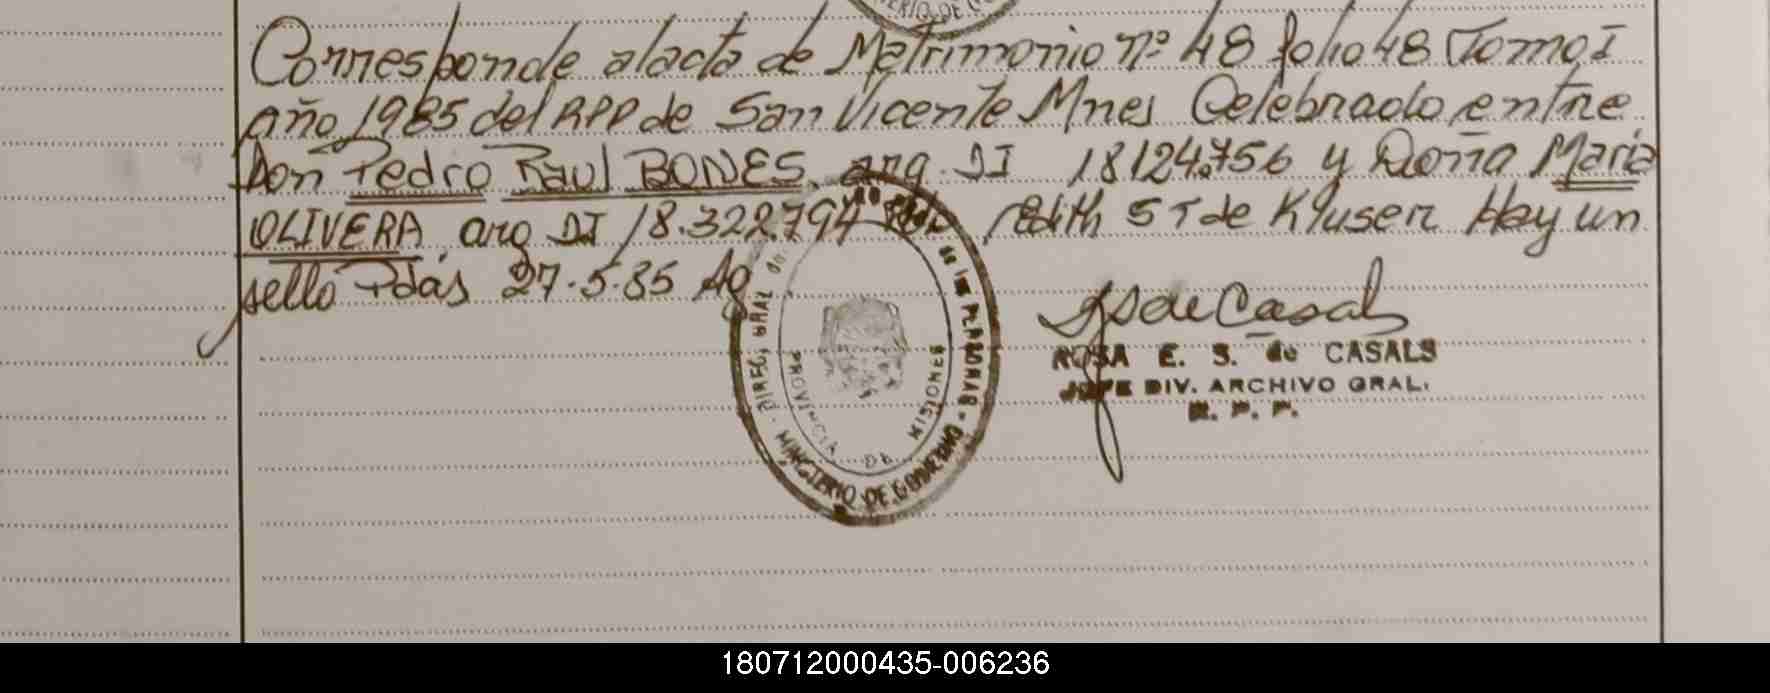 ERIO DE G
Corresponde al acta de Matrimonio nº 48 folio 48 Tomo I
año 1985 del RPP de San Vicente Mnes Celebrado entre
Don Pedro Raul BONES, arg. DI 18.124.756 y Doña Maria
OLIVERA, arg DI 18.322.794 Edith S T de Kluser Hay un
sello Pdas 27.5.85 Ag
DIREC. GRAL de las PERSONAS - MINISTERIO DE GOBIERNO
PROVINCIA DE MISIONES
S de Casals
ROSA E. S. de CASALS
JEFE DIV. ARCHIVO GRAL.
R. P. P.
180712000435-006236